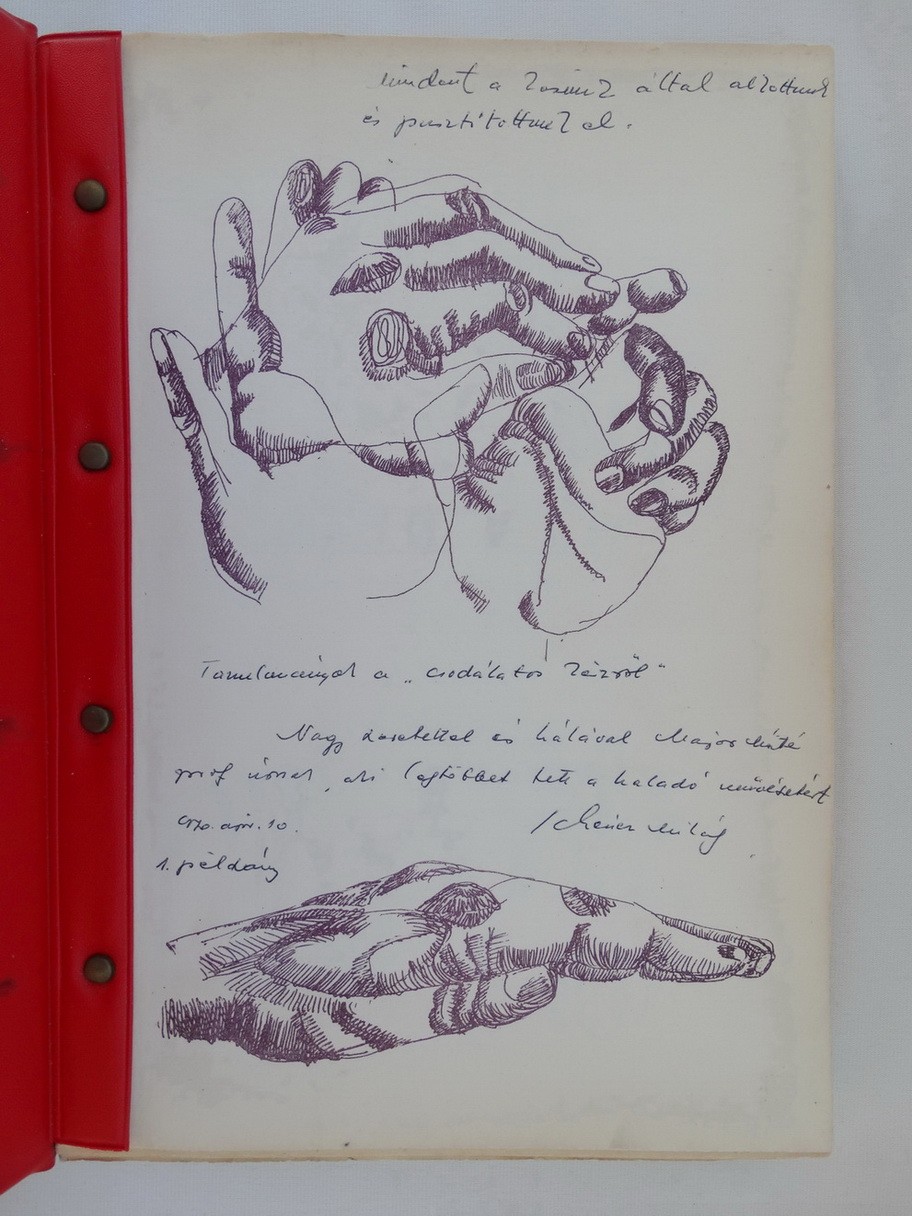 mindent a kezünk által alkottunk
és pusztítottunk el.
Tanulmányok a „csodálatos kézről"
Nagy szeretettel és hálával Major Máté
prof úrnak, aki legtöbbet tett a haladó művészetért
1970. ápr. 10. Scherer Mihály
1. példány